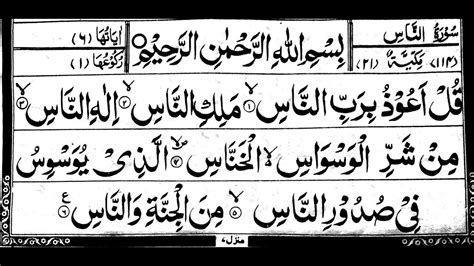 سُوْرَةُ النَّاسِ
﴿١١٤﴾ مَكِّيَّةٌ (٢١)
بِسْمِ اللهِ الرَّحْمٰنِ الرَّحِيْمِ
اٰيَاتُهَا (٦)
رُكُوْعُهَا (١)
قُلْ اَعُوْذُ بِرَبِّ النَّاسِ ۙ﴿١﴾ مَلِكِ النَّاسِ ۙ﴿٢﴾ اِلٰهِ النَّاسِ ۙ﴿٣﴾
مِنْ شَرِّ الْوَسْوَاسِ ۙ۬ الْخَنَّاسِ ۪ۙ﴿٤﴾ الَّذِيْ يُوَسْوِسُ
فِيْ صُدُوْرِ النَّاسِ ۙ﴿٥﴾ مِنَ الْجِنَّةِ وَالنَّاسِ ﴿٦﴾ ع
منزل ٧